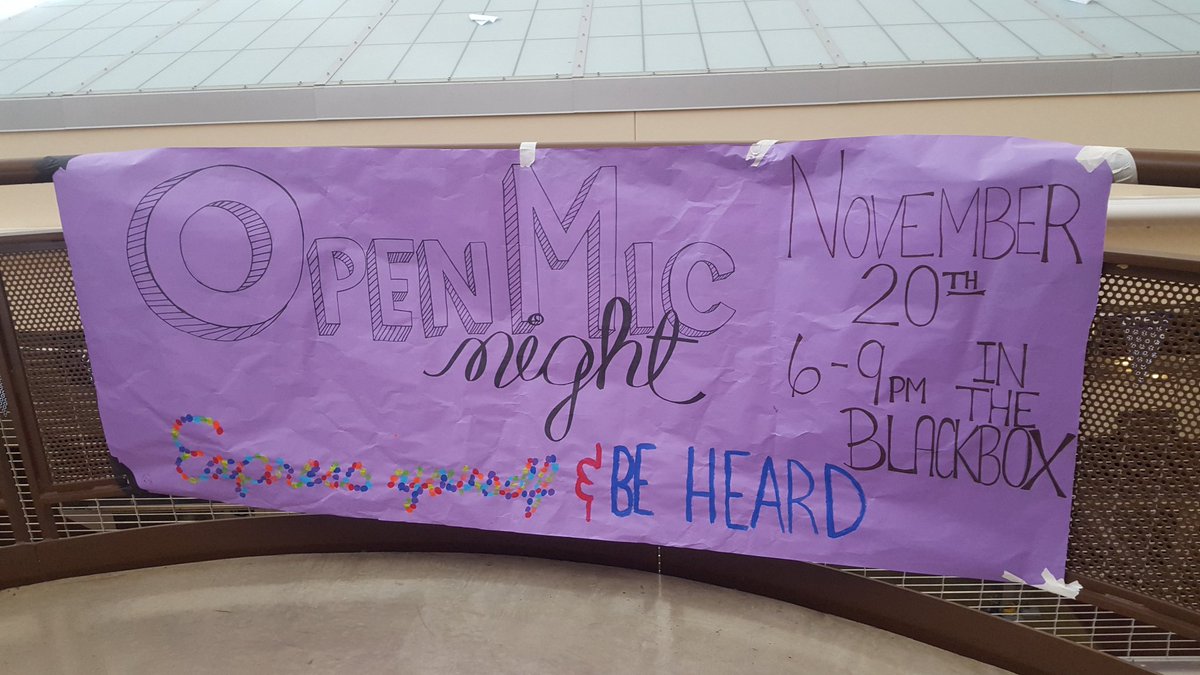 OPEN MIC
night
Express yourself & BE HEARD
NOVEMBER
20TH
6-9PM IN
THE
BLACKBOX